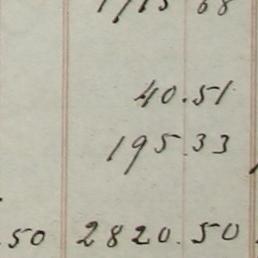 40.51
195.33
.50 2820.50